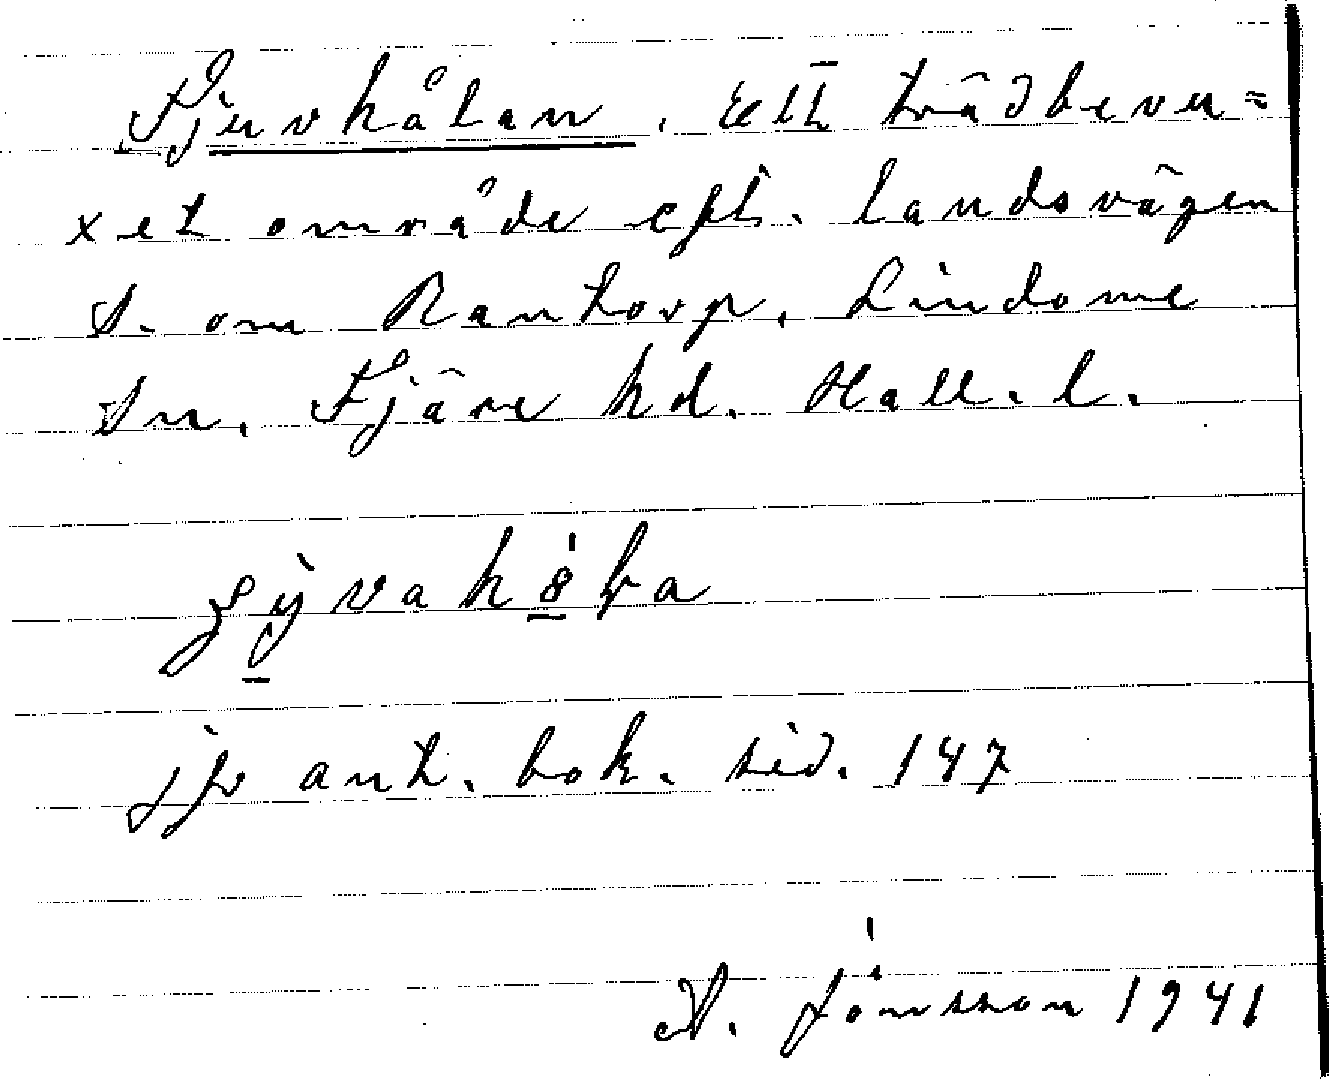 Tjuvhålan. Ett trädbevu=
xet område efst. landsvägen
S. om Rantorp, Lindome
Sn. Fjäre hd. Hall. l.
jfr ant. bok. sid. 147
A. Jönsson 1941